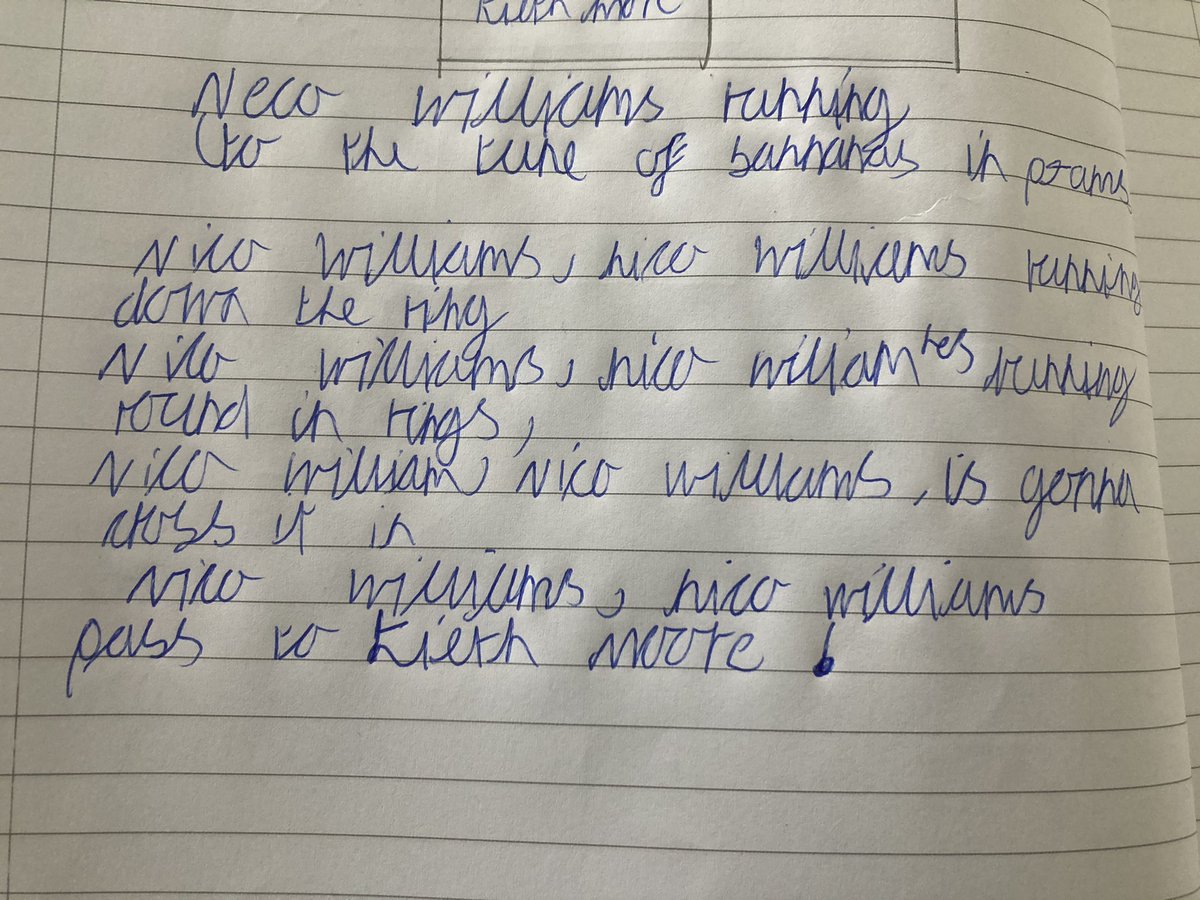 Kieth more
Neco williams running
(to the tune of bannanas in prams
Nico williams, nico williams running
down the ring
Nico williams, nico williames running
round in rings,
Nico william, Nico williams, is gonna
cross it in
Nico williams, nico williams
pass to Kieth moore !